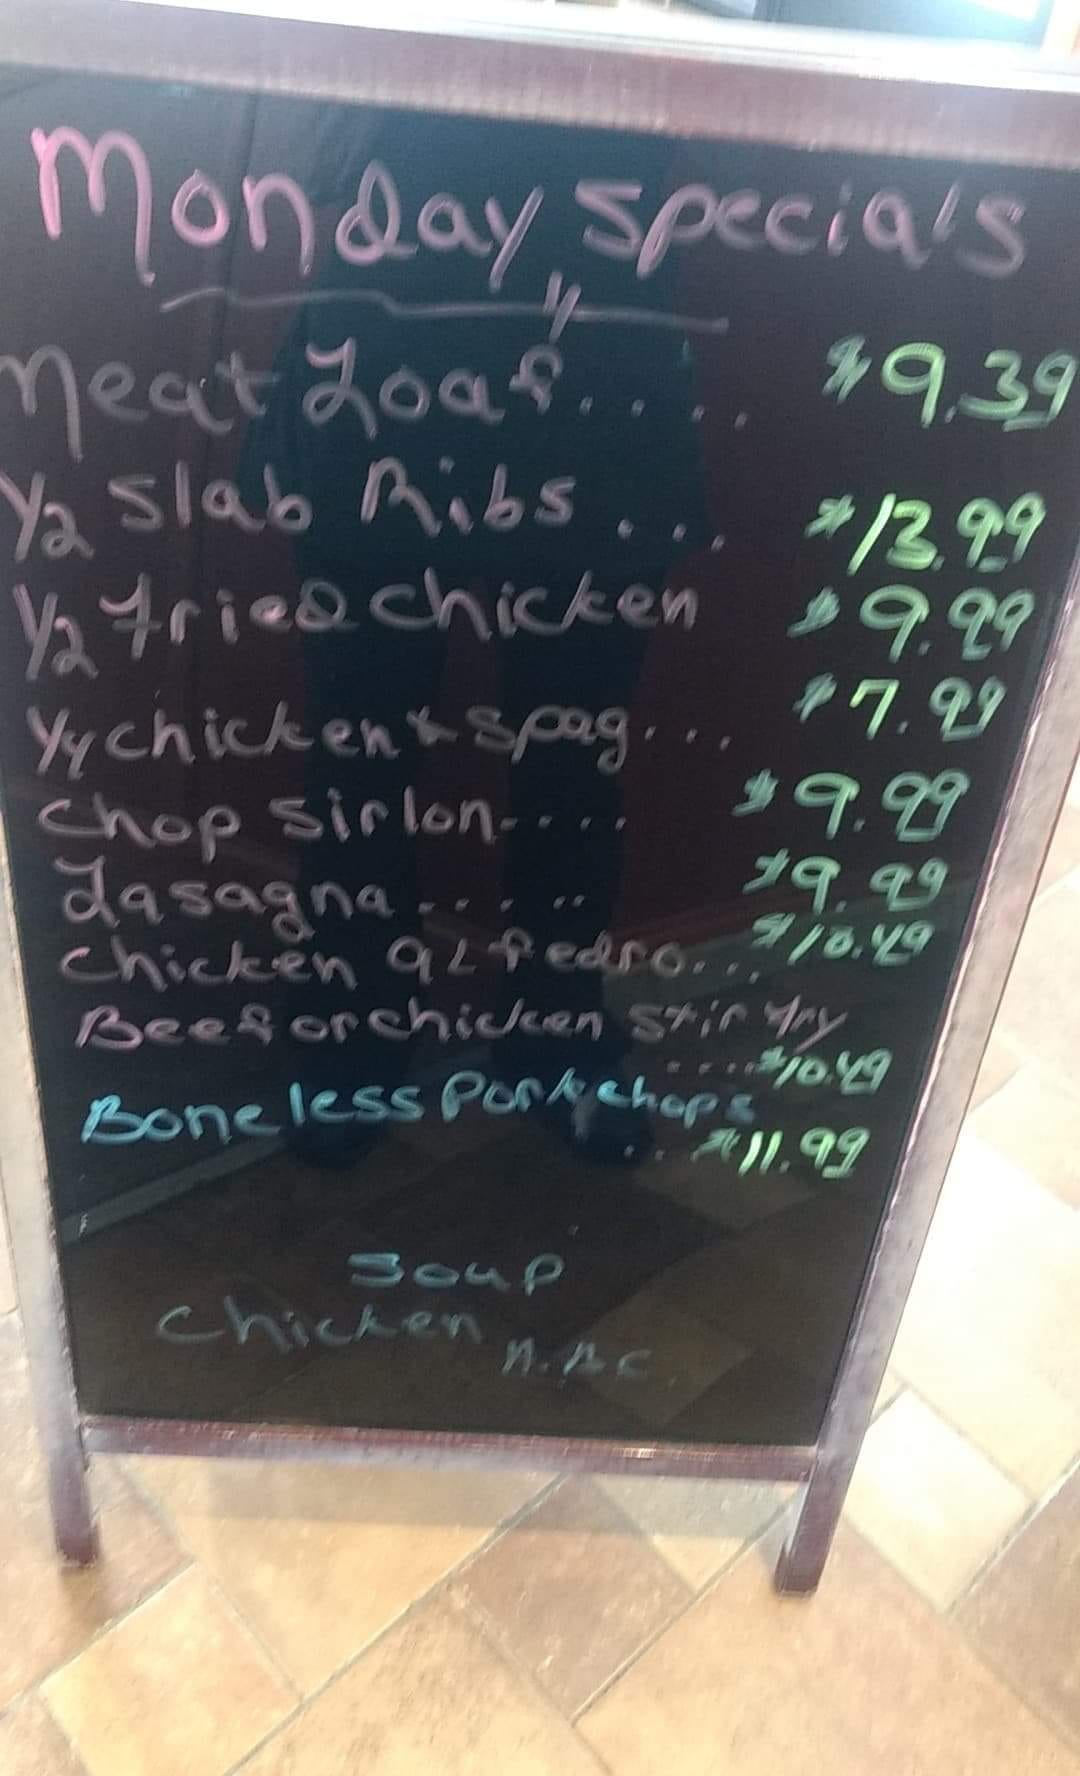 Monday Specials
Meat Loaf.... $9.39
1/2 Slab Ribs... $13.99
1/2 Fried Chicken $9.99
1/4 chicken & Spag... $7.99
Chop Sirlon..... $9.99
Lasagna...... $9.99
Chicken alfedro... $10.49
Beef or chicken Stir Fry
.... $10.49
Boneless Pork chops
.. $11.99
Soup
Chicken
A.B.C.